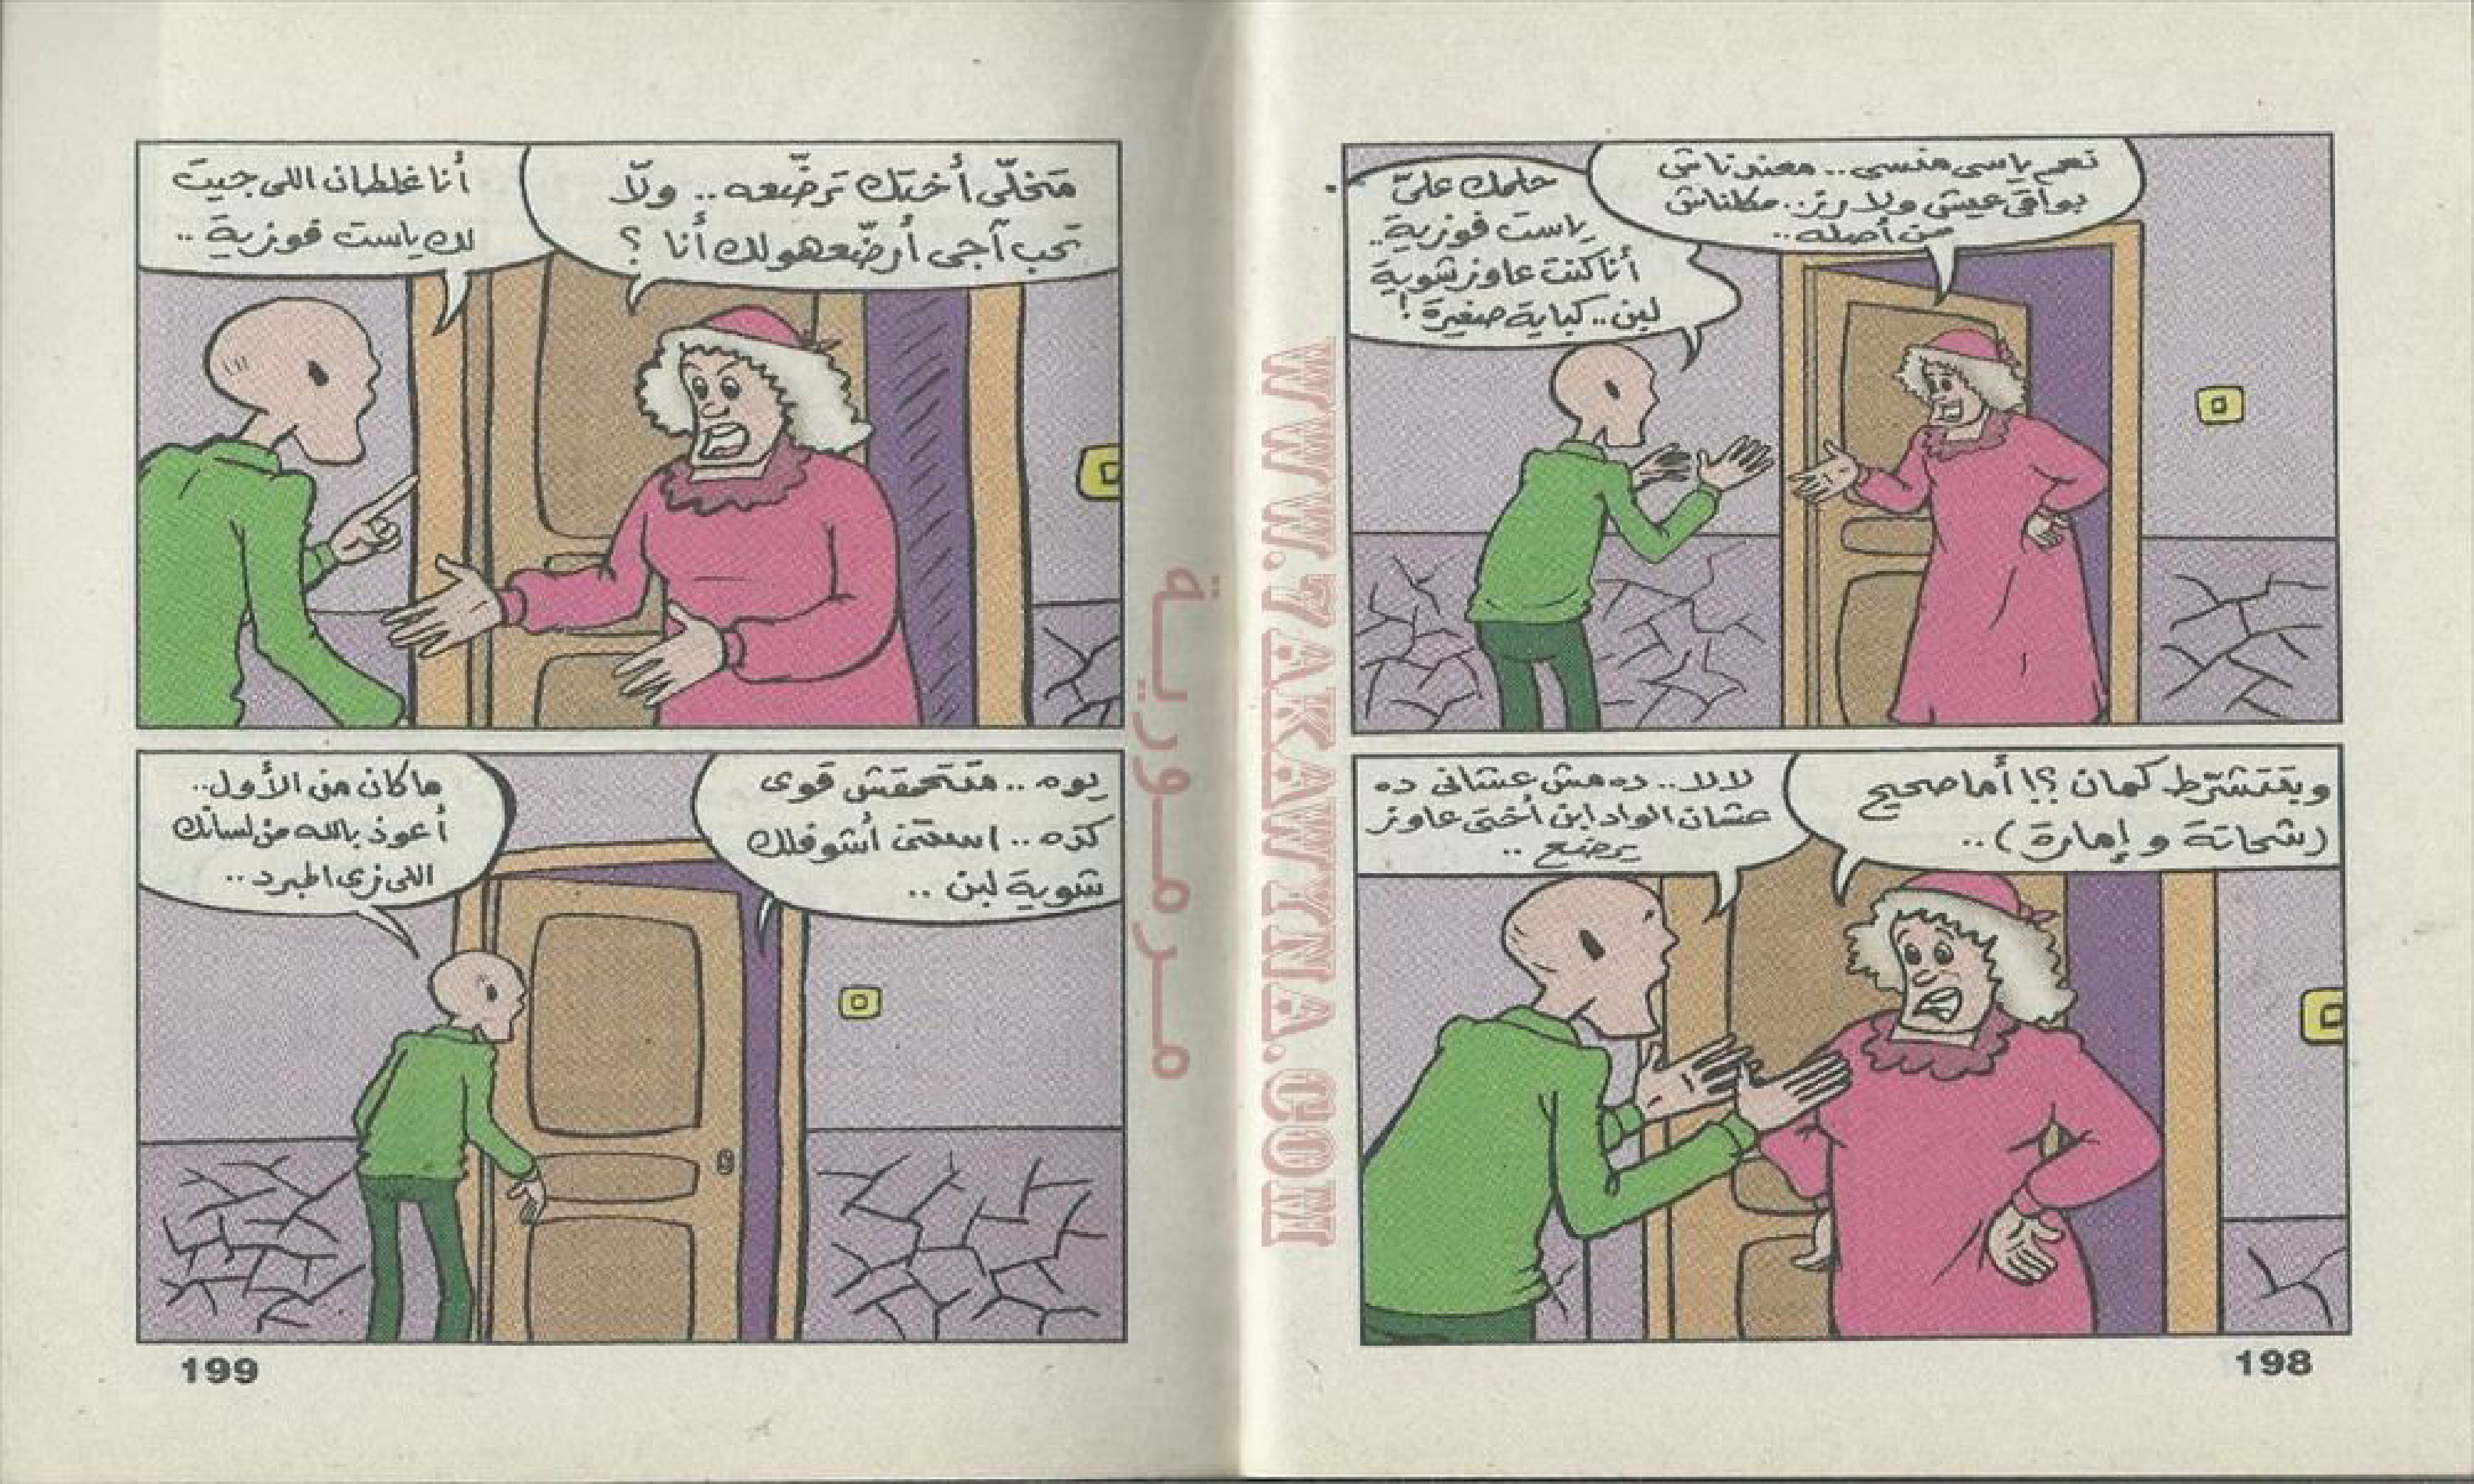 نعم ياسى منسى.. معندناش
بواقى عيش ولا رز.. مكلناش
من أصله..
حلمك علىّ
ياست فوزية..
أنا كنت عاوز شوية
لبن.. كباية صغيرة!
وبتتشرّط كمان ؟! أما صحيح
(شحاتة و إمارة)..
لا لا.. ده مش عشانى ده
عشان الواد ابن أختى عاوز
يرضع..
198
متخلّى أختك ترضّعه.. ولّا
تحب آجى أرضّعهولك أنا ؟
أنا غلطان اللى جيت
لك ياست فوزية..
يوه.. متتحمقش قوى
كده.. استنى أشوفلك
شوية لبن..
ما كان من الأول..
أعوذ بالله من لسانك
اللى زى المبرد..
199
مرمورية
WWW.7AKAWYNA.COM